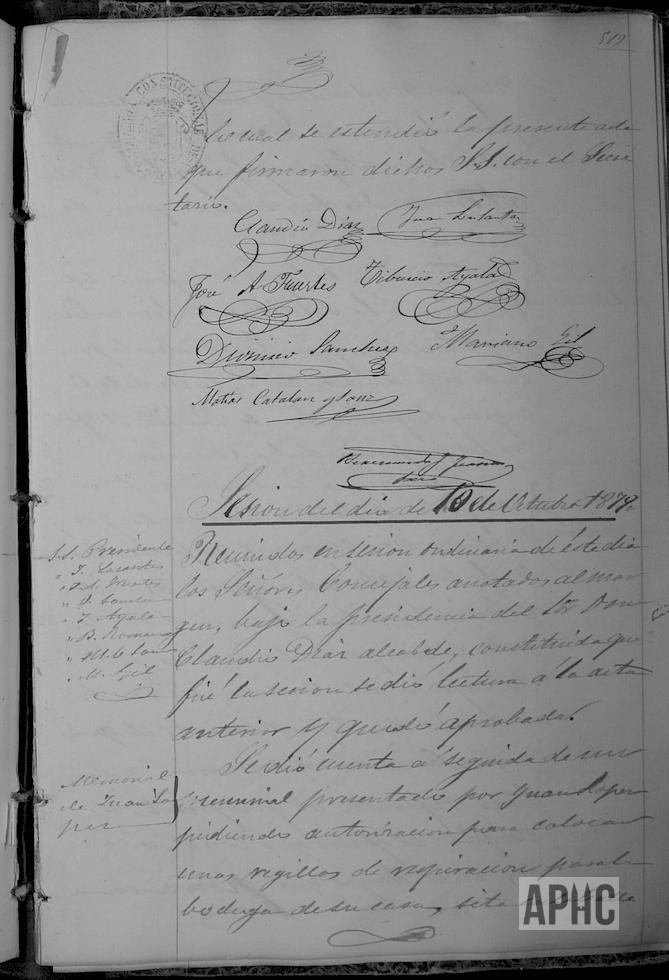 519
lo cual se estendió la presente acta
que firmaron dichos S.S. con el Secre
tario.
Claudio Diaz
José A Fuertes
Tiburcio Ayala
Dionisio Sanchez
Mariano Gil
Matias Catalan y Sanz
Sesion del dia de 10 de Octubre 1879.
S.S. Presidente
" A. Fuertes
" T. Ayala
" M. Gil
Reunidos en sesion ordinaria de éste dia
los Señores Concejales anotados al mar
gen, bajo la presidencia del Sr Don
Claudio Diaz alcalde, constituida que
fué la sesion se dió lectura á la acta
anterior y quedó aprobada.
Memorial
de Juan Lo
pez
Se dió cuenta á seguida de un
memorial presentado por Juan Lopez
pidiendo autorizacion para colocar
unas regillas de respiracion para la
bodega de su casa, sita
APHC